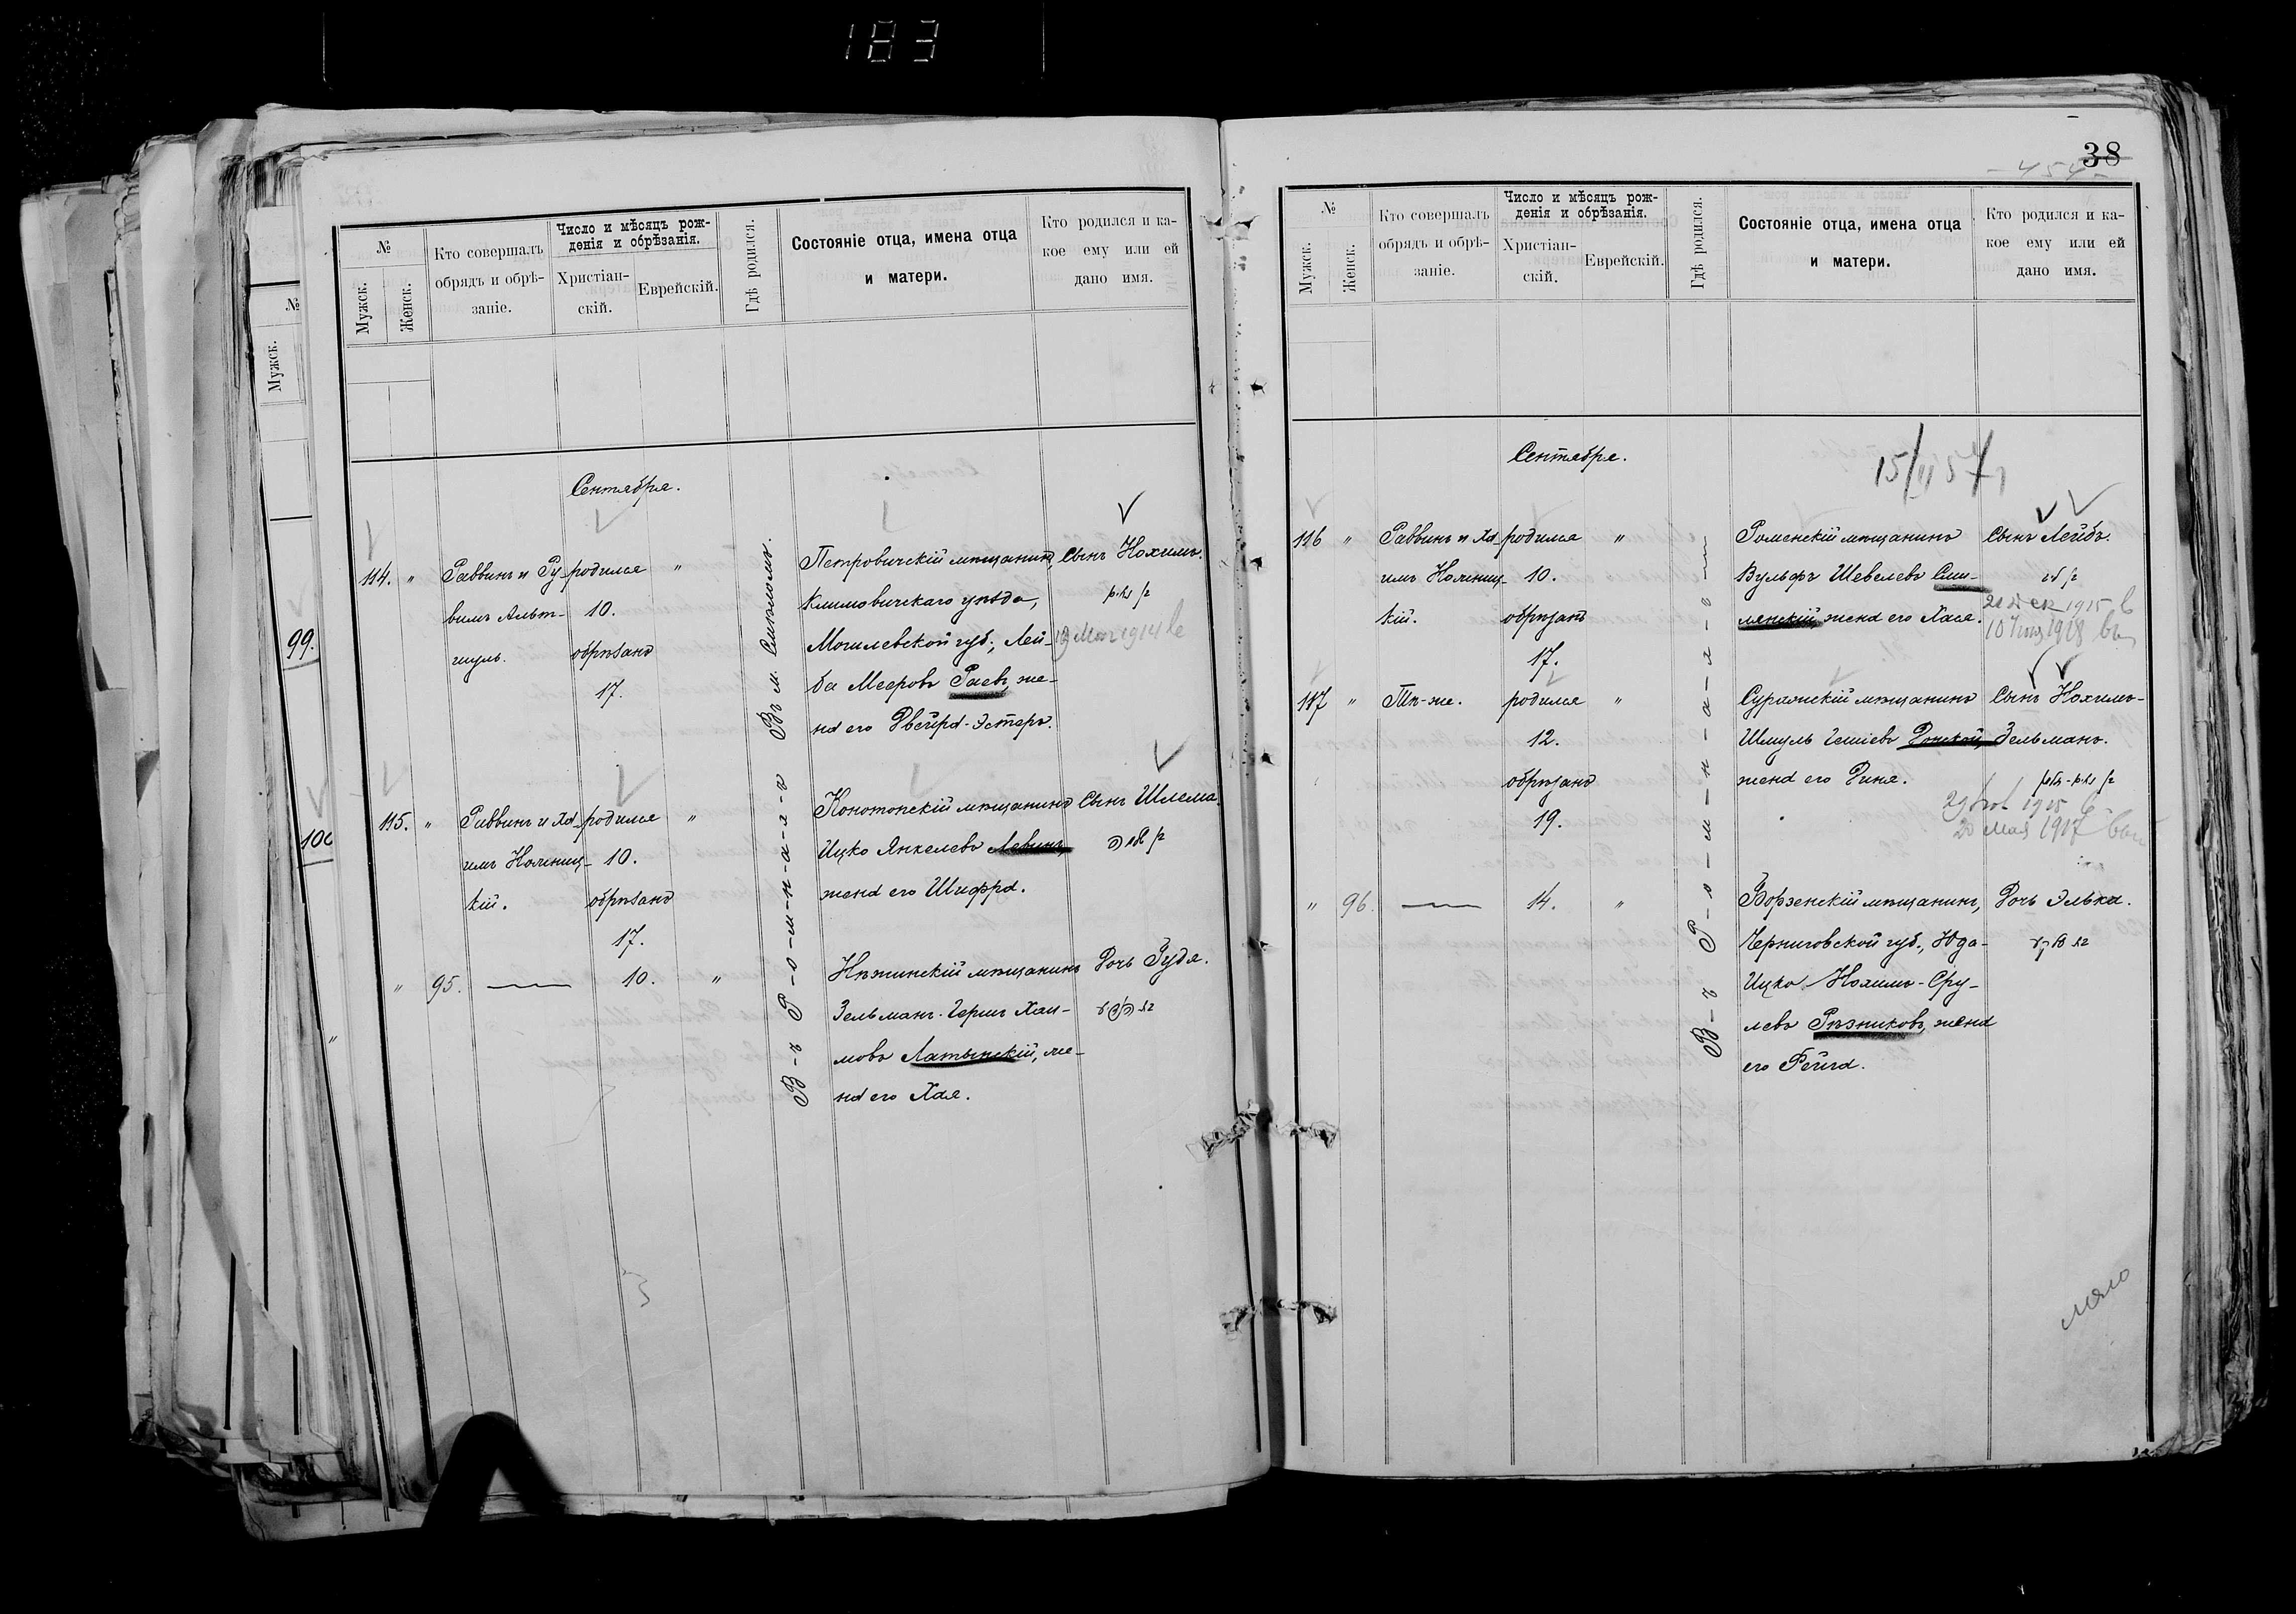 183
№
Мужск.
99.
100
"
№
Мужск.
Женск.
Кто совершалъ
обрядъ и обрѣ-
заніе.
Число и мѣсяцъ рож-
денія и обрѣзанія.
Христіан-
скій.
Еврейскій.
Гдѣ родился.
Состояніе отца, имена отца
и матери.
Кто родился и ка-
кое ему или ей
дано имя.
Сентября.
114. "
Раввинъ и Ру-
вимъ Альт-
шуль.
родился "
10.
обрѣзанъ
17.
Въ м.
Петровичскій мѣщанинъ,
Климовичскаго уѣзда,
Могилевской губ., Лей-
ба Мееровъ Раевъ, же-
на его Двейра-Эстеръ.
Сынъ Нохимъ.
1914
115. "
Раввинъ и Ха-
имъ
кій.
родился "
10.
обрѣзанъ
17.
В-ъ Р-о-м-н-а-х-ъ
Конотопскій мѣщанинъ
Ицко Янкелевъ Левинъ,
жена его Шифра.
Сынъ Шлема.
" 95. — 10. "
Нѣжинскій мѣщанинъ
Зельманъ-Гершъ Хаи-
мовъ Латынскій, же-
на его Хая.
Дочь Гудя.
38
454
№
Мужск.
Женск.
Кто совершалъ
обрядъ и обрѣ-
заніе.
Число и мѣсяцъ рож-
денія и обрѣзанія.
Христіан-
скій.
Еврейскій.
Гдѣ родился.
Состояніе отца, имена отца
и матери.
Кто родился и ка-
кое ему или ей
дано имя.
Сентября.
116 "
Раввинъ и Ха-
имъ
кій.
родился "
10.
обрѣзанъ
17.
В-ъ Р-о-м-н-а-х-ъ
Роменскій мѣщанинъ
Вульфъ Шевелевъ Сми-
лянскій, жена его Хася.
Сынъ Лейбъ.
21 дек 1915
1918
117 "
Тѣ-же.
родился "
12.
обрѣзанъ
19.
Суражскій мѣщанинъ
Шмуль Гешіевъ Донской,
жена его Риня.
Сынъ Нохимъ-
Зельманъ.
1915
20 мая 1917
" 96. — 14. "
Борзенскій мѣщанинъ,
Черниговской губ., Юда-
Ицко Нохимъ-Сру-
левъ Рѣзниковъ, жена
его Рейза.
Дочь Элька.